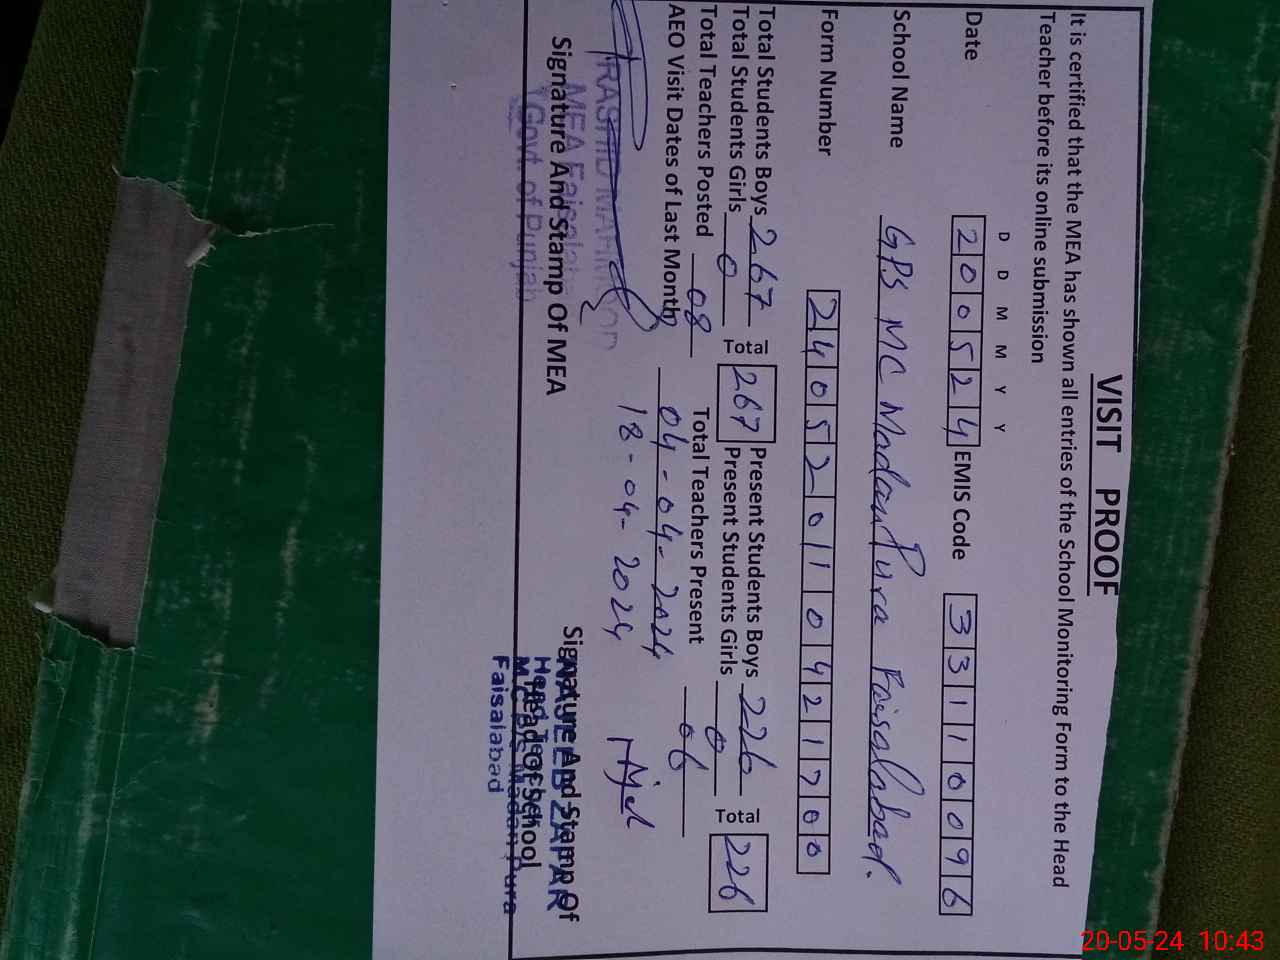 VISIT PROOF
It is certified that the MEA has shown all entries of the School Monitoring Form to the Head
Teacher before its online submission
D D M M Y Y
Date 200524 EMIS Code 33110096
School Name GPS MC Madan Pura Faisalabad.
Form Number 240520110421700
Total Students Boys 267 Total 267 Present Students Boys 226 Total 226
Total Students Girls 0 Present Students Girls 0
Total Teachers Posted 08 Total Teachers Present 06
AEO Visit Dates of Last Month 04-04-2024
18-04-2024
RASHID MAHMOOD
MEA Faisalabad
Govt. of Punjab
Signature And Stamp Of MEA
Signature And Stamp Of
Head Of School
NAJEEB ZAFAR
Head Teacher
M.C Madan Pura
Faisalabad
20-05-24 10:43